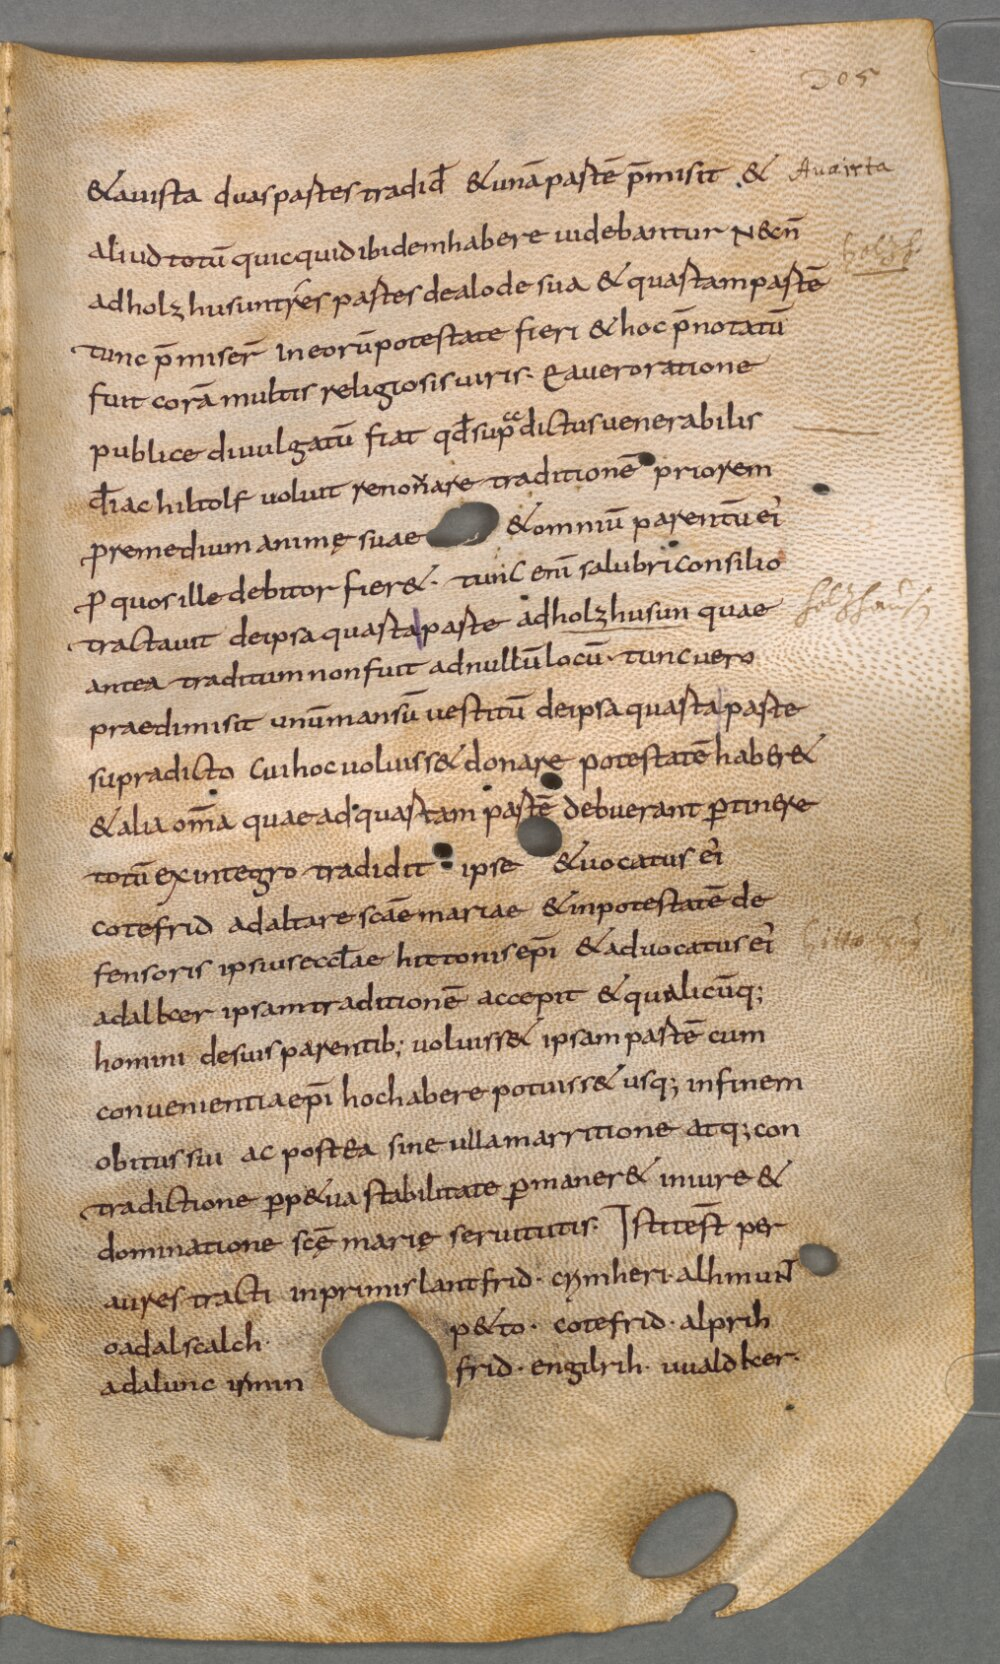 305
&auista duas pastes tradid̄ & unā pastē p̄misit & Auuista
aliud totū quicquid ibidem habere uidebantur N&cn̄
ad holzhusun tres pastes de alode sua & quastam pastē
tunc p̄miser̄ In eorū potestate fieri & hoc p̄notatū
fuit corā multis religiosis uiris. Ea uero ratione
publice diuulgatū fiat qđ sup̄dictus uenerabilis
điac hiltolf uoluit renoṽare traditionē priorem
p remedium animę suae & omniū parentū ei
p quos ille debitor fier&. tunc enī salubri consilio
tractauit de ipsa quasta paste ad holzhusun quae holzhaus
antea traditum non fuit ad nullū locū. tunc uero
praedimisit unū mansū uestitū de ipsa quasta paste
supradicto Cui hoc uoluiss& donare potestatē haber&
& alia om̄a quae ad quastam pastē debuerant ptinere
totū ex integro tradidit ipse & uocatus ei
cotefrid ad altare scāe mariae & in potestatē de
fensoris ipsius eccłae hittonis ep̄i & aduocatus ei
adalker ipsam traditionē accepit & qualicūq;
homini de suis parentib; uoluiss& ipsam pastē cum
conuenientia ep̄i hoc habere potuiss& usq; in finem
obitus sui ac postea sine ulla marritione atq; con
tradictione pp&ua stabilitate pmaner& in iure &
dominatione scę̄ marię seruitutis. Isti test̄ per
aures tracti in primis lantfrid. cymheri. alhmunt
oadalscalch. p&to. cotefrid. alprih
adalunc irmin frid. engilrih. uualdker.